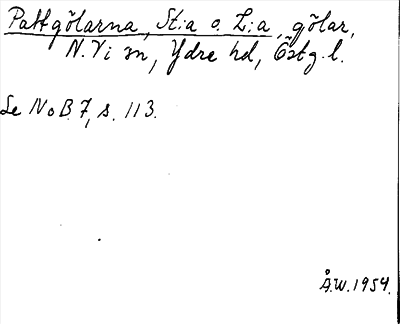 Pattgölarna, St:a o. L:a, gölar,
N. Vi sn, Ydre hd, Östg. l.
Se NoB. 7, s. 113.
Å.W. 1954.